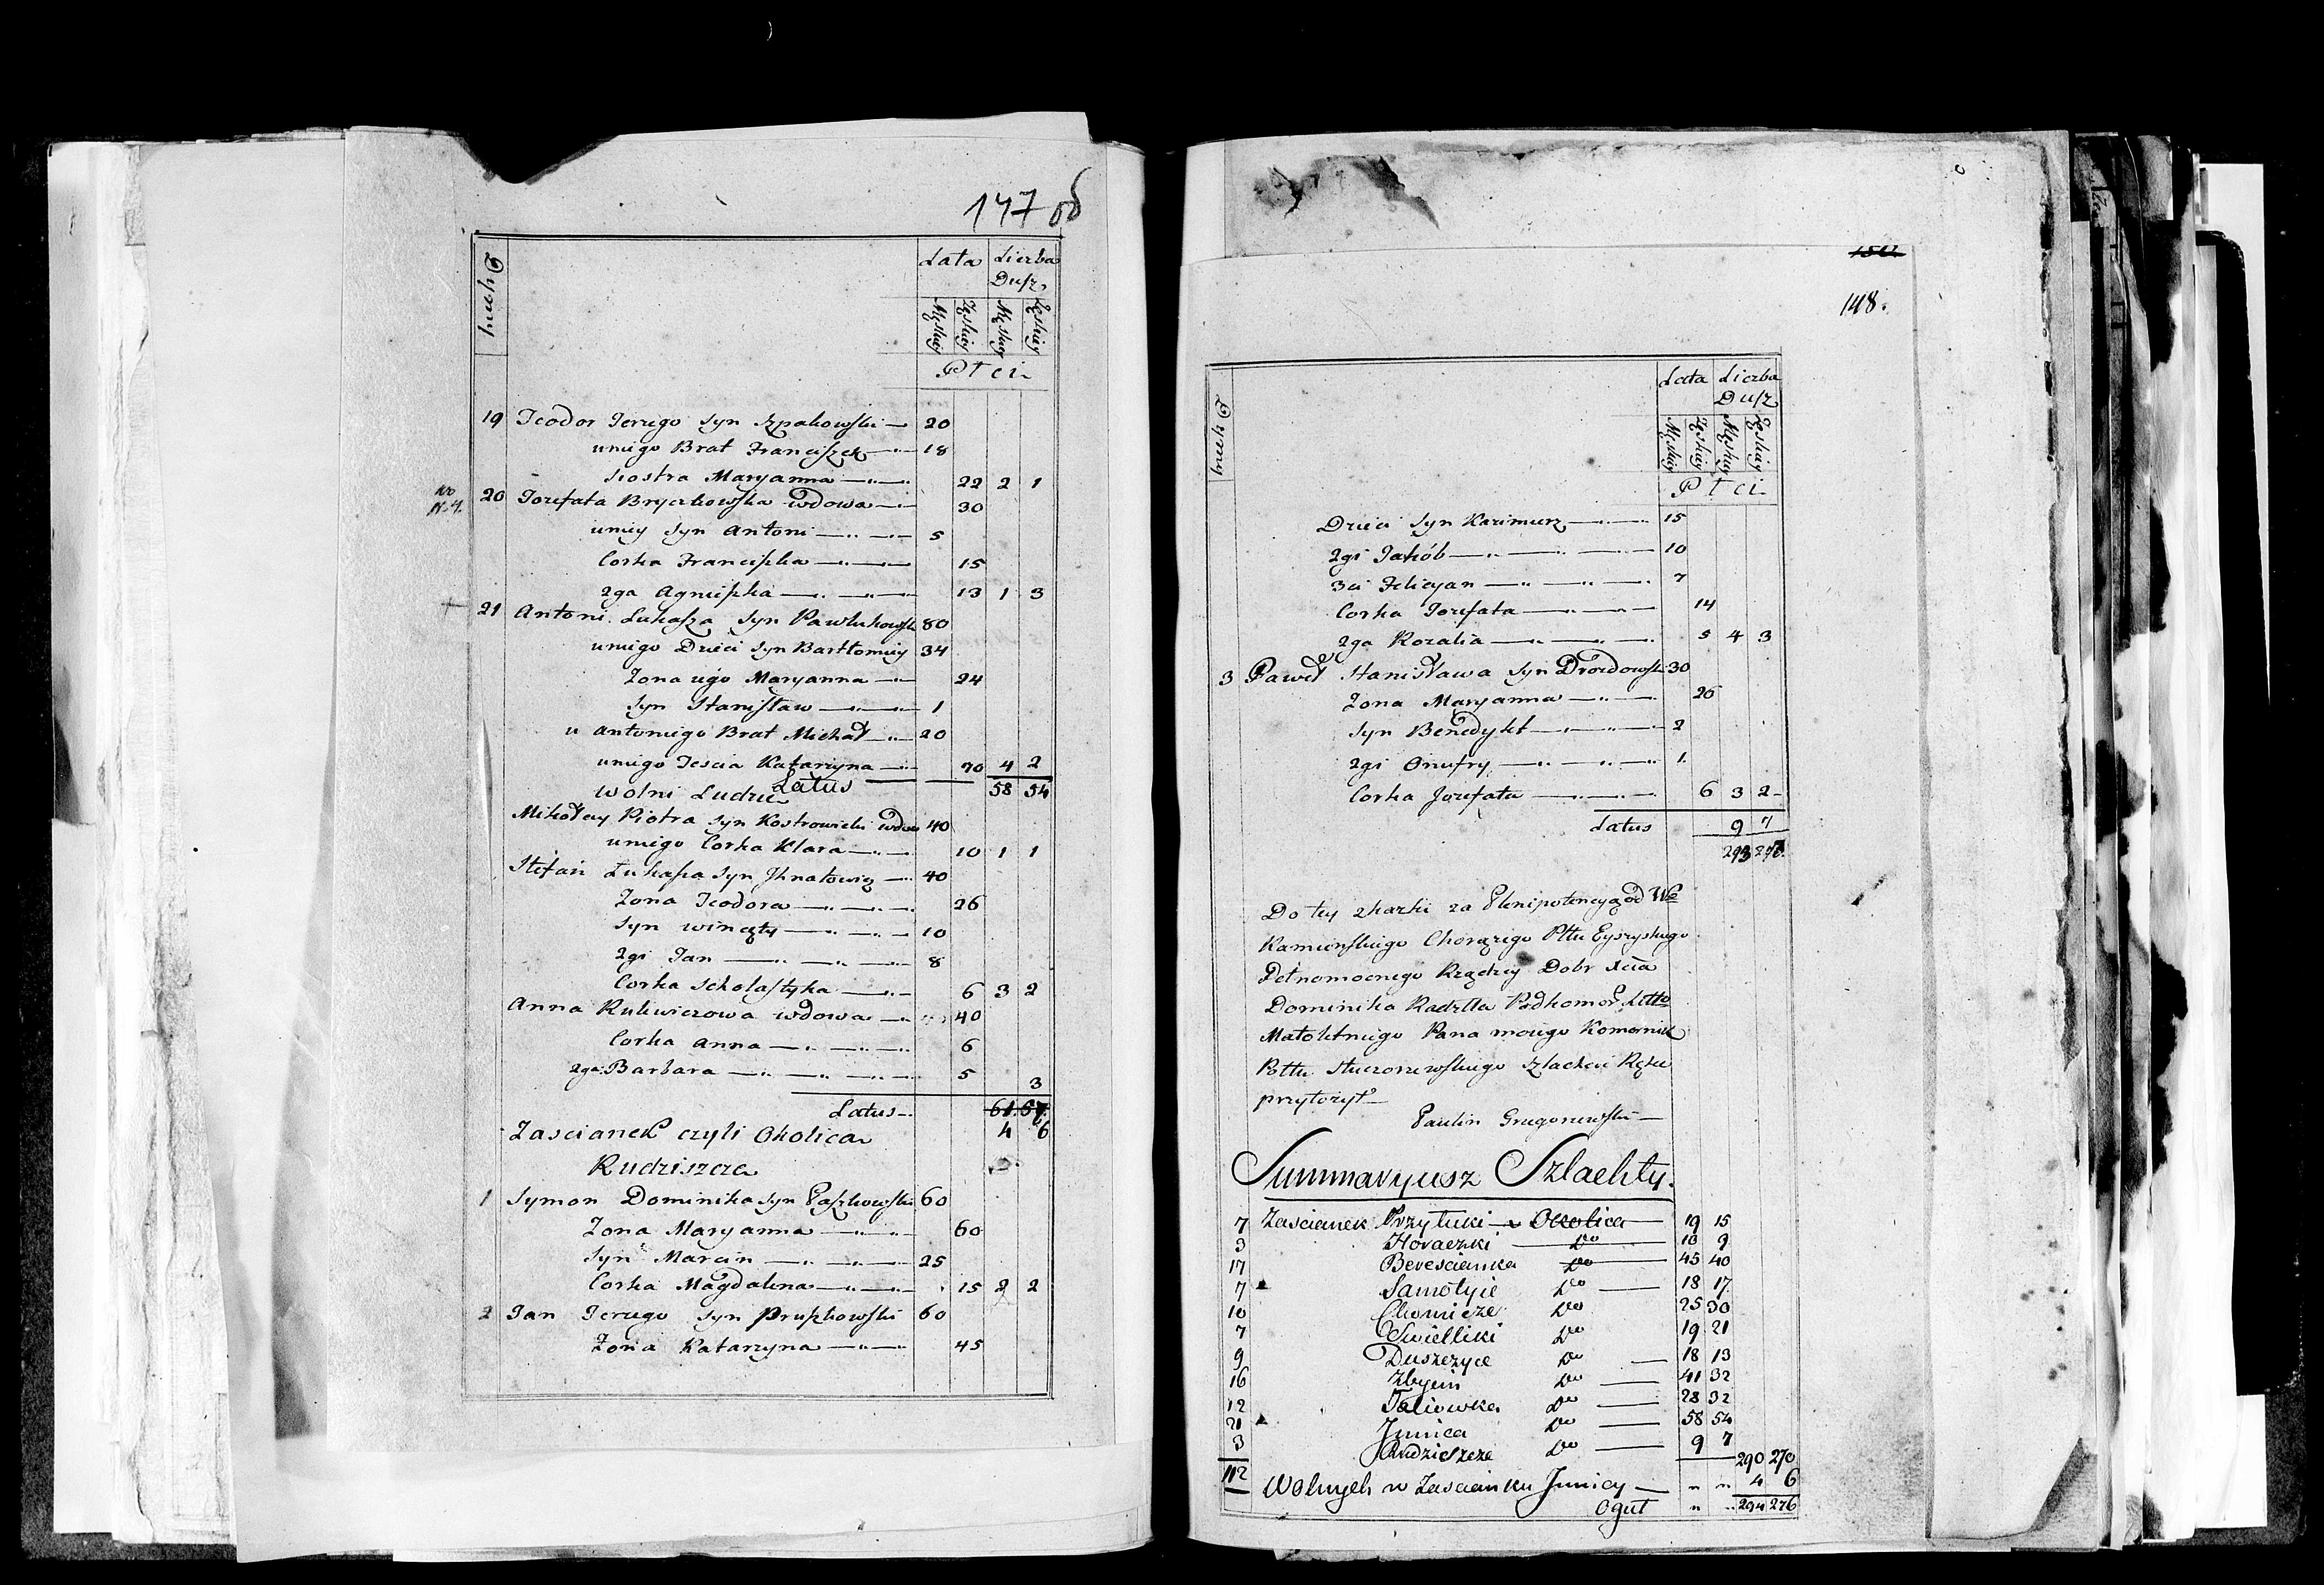 147 об
Dymy
Lata Liczba
Dusz
Męskiey Żęskiey Męskiey Żęskiey
Płci
19 Teodor Jerzego Syn Szpakowski 20
uniego Brat Franciszek 18
Siostra Maryanna 22 2 1
No
N. 4.
20 Jozefata Bryczkowska wdowa 30
uniey Syn Antoni 5
Corka Franciszka 15
2ga Agnieszka 13 1 3
21 Antoni Łukasza Syn Pawlukowski 80
uniego Dzieci Syn Bartłomiey 34
Zona iego Maryanna 24
Syn Stanisław 1
u Antoniego Brat Michał 20
uniego Tescia Katarzyna 70 4 2
Latus 58 54
Wolni Ludzie
Mikołay Piotra Syn Kostrowicki wdow 40
uniego Corka Klara 10 1 1
Stefan Łukasza Syn Ihnatowicz 40
Zona Teodora 26
Syn Wincęty 10
2gi Jan 8
Corka Scholastyka 6 3 2
Anna Kulwiczowa wdowa 40
Corka Anna 6
2ga Barbara 5 3
Latus 61. 57.
4 6
Zascianek czyli Okolica
Rudziszcza
1 Symon Dominika Syn Paszkowski 60
Zona Maryanna 60
Syn Marcin 25
Corka Magdalena 15 2 2
2 Jan Jerzego Syn Pruszkowski 60
Zona Katarzyna 45
148.
Dymy
Lata Liczba
Dusz
Męskiey Żęskiey Męskiey Żęskiey
Płci
Dzieci Syn Kazimierz 15
2gi Jakób 10
3ci Felicyan 7
Corka Jozefata 14
2ga Rozalia 5 4 3
3 Paweł Stanisława Syn Drozdowski 30
Zona Maryanna 26
Syn Benedykt 2
2gi Onufry 1
Corka Jozefata 6 3 2
Latus 9 7
Do tey skazki za Plenipotencyą od We
Kamienskiego Chorązego Pttu Eyszyskiego
Pełnomocnego Rządzcy Dobr Xcia
Dominika Radztta Podkomor Litto
Małoletniego Pana moiego Komornik
Pottu Słuczoniewskiego Szlachcic Rękę
przyłozył
Paulin Gregorzewski
Summaryusz Szlachty.
7 Zascianek Przytuki Okolica 19 15
3 Horaczki Do 10 9
17 Berescianka Do 45 40
7 Samotyie Do 18 17
10 Chomicze Do 25 30
7 Swietliki Do 19 21
9 Duszczyce Do 18 13
16 Zbygin Do 41 32
12 Taliowka Do 28 32
21 Junica Do 58 54
3 Rudziszcze Do 9 7
290 270
112 Wolnych w Zascianku Junicy " " 4 6
Oguł " " 294 276